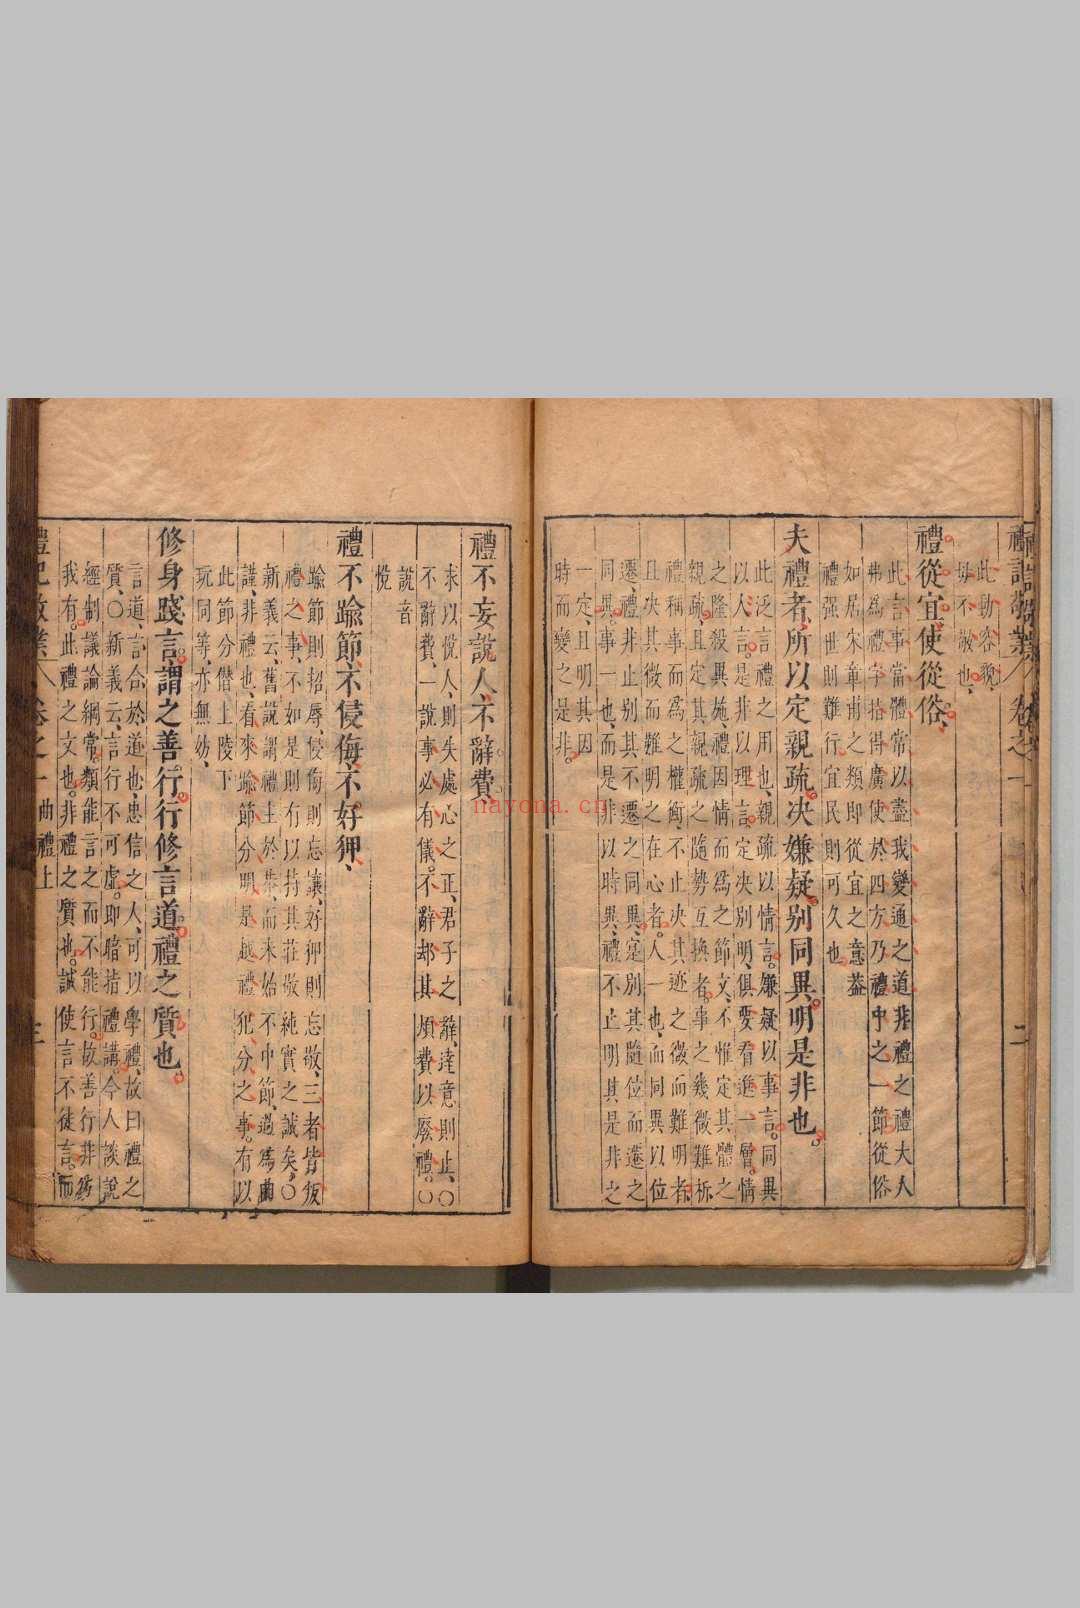 此動容貌、
毋不敬也、
禮從宜、使從俗、
此言事當體常以盡我變通之道非禮之禮大人
弗爲禮字拈得廣使於四方乃禮中之一節從俗
如居宋章甫之類即從宜之意葢
禮强世則難行宜民則可久也
夫禮者、所以定親疏、决嫌疑、别同異、明是非也。
此泛言禮之用也、親疏以情言。嫌疑以事言。同異
以人言。是非以理言。定决别明、俱要看進一層。情
之隆殺異施、禮因情而爲之節文、不惟定其體之
親疏、且定其親疏之隨勢互換者。事之幾微難柝
禮稱事而爲之權衡、不止决其迹之微而難明者、
且决其微而難明之在心者。人一也、而同異以位
遷、禮非止别其不遷之同異、寔别其隨位而遷之
同異。事一也、而是非以時異、禮不止明其是非之
一定、且明其因
時而變之是非。
禮不妄說人、不辭費、
求以悅人、則失處心之正、君子之辭、達意則止、〇
不辭費、一說事必有儀。不辭却其煩費以廢禮。〇
說音
悅
禮不踰節、不侵侮、不好狎、
踰節則招辱、侵侮則忘讓、好狎則忘敬、三者皆叛
禮之事、不如是則有以持其莊敬純實之誠矣。〇
新義云、舊說謂禮主於恭、而末始不中節、過爲曲
謹、非禮也、看來踰節分明是越禮犯分之事。有以
此節分僭上陵下
玩同等、亦無妨、
修身踐言、謂之善行。行修言道、禮之質也。
言道、言合於道也、忠信之人、可以學禮、故曰禮之
質、〇新義云、言行不可虛。即暗指禮講。今人談說
經制議論綱常。類能言之而不能行。故善行非務
我有。此禮之文也。非禮之質也。誠使言不徒言。而
禮記敬業 卷之一 曲禮上